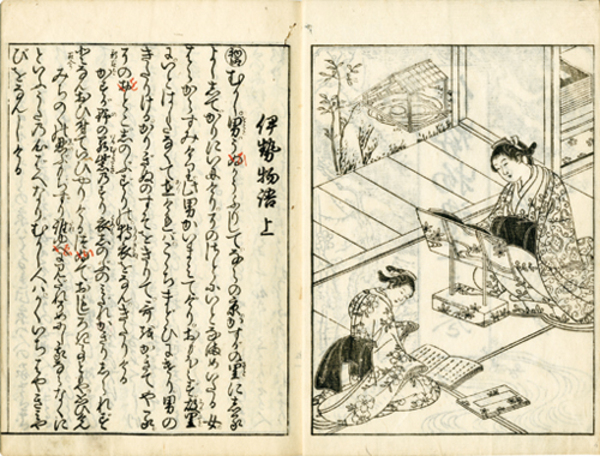 伊勢物語 上
むかし男うゐかうふりしてならの京かすがの里にしる
よししてかりにいにけりそのさとにいとなまめいたる女
はらからすみけり此男かいまみてけりおもほえず故里
にいとはしたなくて有ければこゝちまどひにけり男の
きたりけるかりぎぬのすそをきりて哥をかきてやる
そのおとこしのぶずりの狩衣をなんきたりける
かすが野の若紫のすり衣しのぶのみだれかぎりしられず
となんおひつきていひやりけるついでおもしろきことともや思ひけん
みちのくの忍ぶもぢずり誰ゆへにみだれそめにし我ならなくに
といふうたの心ばへなりむかし人はかくいちはやきみや
びをなんしける